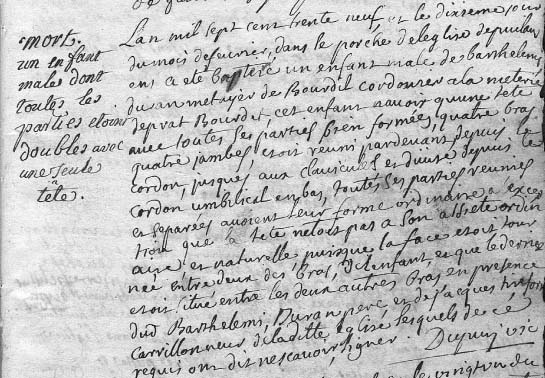 mort.
un enfant
male dont
toutes les
parties etoint
doubles avec
une seule
tête.
Lan mil sept cent trente neuf, et le dixieme jour
du mois defevrier, dans le porche de leglise
ens a eté baptisé un enfant male de barthelemi
duran metayer de Bourdil cordonier a la meterie
deprat Bourdil, cet enfant navoir qu'une tete
avec toutes ses parties bien formées, quatre bras
quatre jambes etoit reuni pardevant depuis le
cordon, jusques aux clavicules et duise depuis le
cordon umbilical en bas, toutes ses parties reunies
et separées avoient leur forme ordinaire a excep
tion que la tete netoit pas a son assiete ordin
aire et naturelle puisque la face etoit tour
née entre deux des bras, delenfant, et que le derriere
etoit situe entre les deux autres bras en presence
dud Barthelemi Duran pere et de jacques
carrillonneur deladitte eglise lesquels de ce
requis ont dit ne scavoir signer. Dupuy vic
le vingtun du